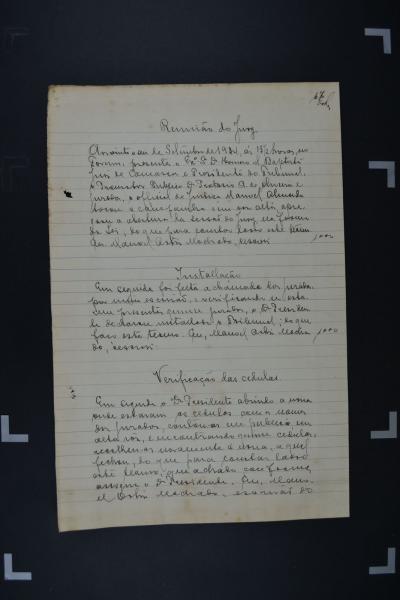 Reunião do Jury
de Setembro de 1934, ás 13½ horas, no
Forum, presente o Exº Dr. D. Honorio d Baptista
Juiz da Comarca e Presidente do Tribunal,
o Promotor Publico Dr. A. de Oliveira e
jurados, o official de Justiça Manoel Almeida
tocou a campainha e em voz alta,
a abertura da sessão do Jury,
da Lei, do que para constar lavro este termo
Eu, Manoel Machado, escrivão
Installação
Em seguida foi feita a chamada dos jurados
por mim escrivão, e verificando-se
presentes quinze jurados, o Dr. Presiden-
te declarou installado o Tribunal; do que
faço este termo. Eu, Manoel Macha-
do, escrivão.
Verificação das cedulas
Em seguida o Dr. Presidente abrindo a urna
onde estavam as cedulas com o nome
dos jurados, contou-as em publico, em
alta voz, e encontrando quinze cedulas,
recolheu-as novamente á urna, a que
fechou, do que para constar lavro
este termo, que achado conforme,
assigna o Dr. Presidente. Eu, Mano-
el Machado, escrivão do